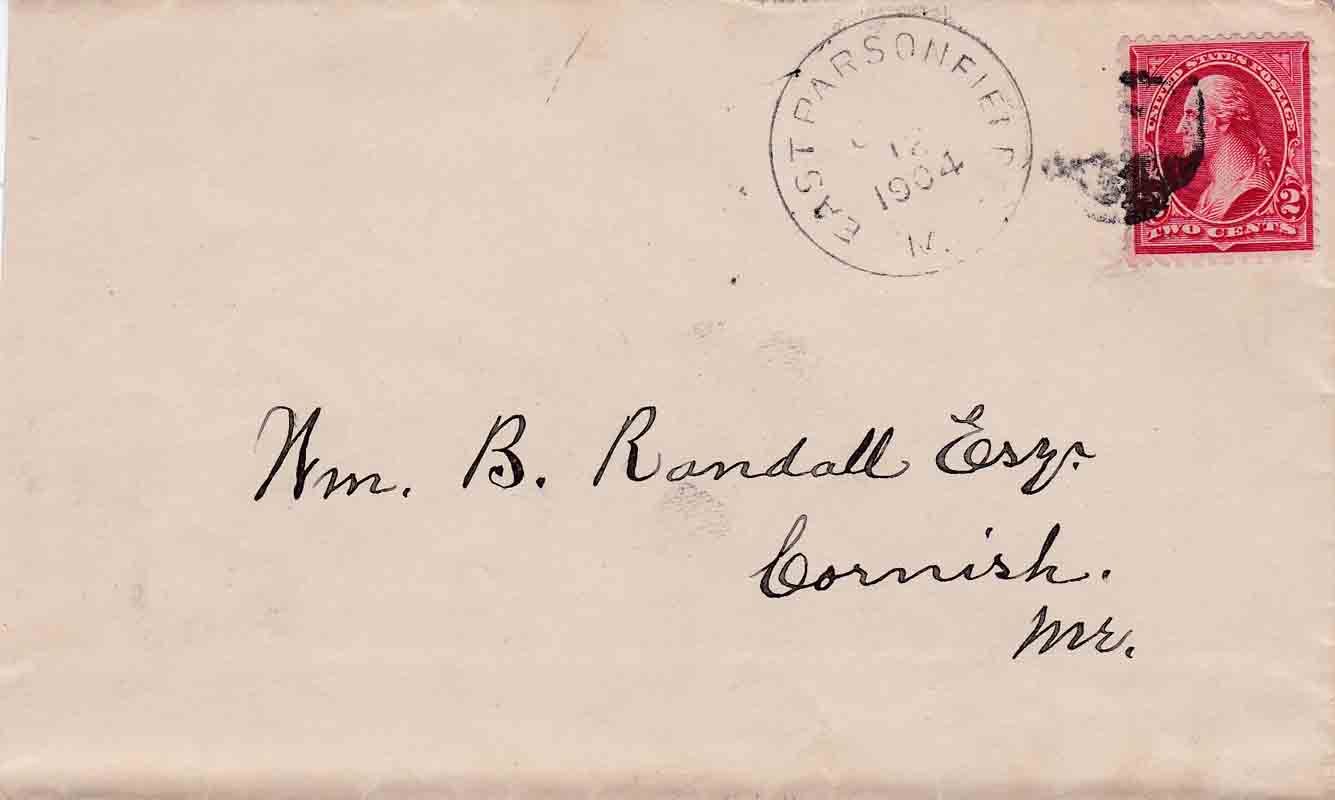 EAST PARSONFIELD
12
1904
M.
UNITED STATES POSTAGE
2
TWO CENTS
Wm. B. Randall Esqr.
Cornish.
Me.